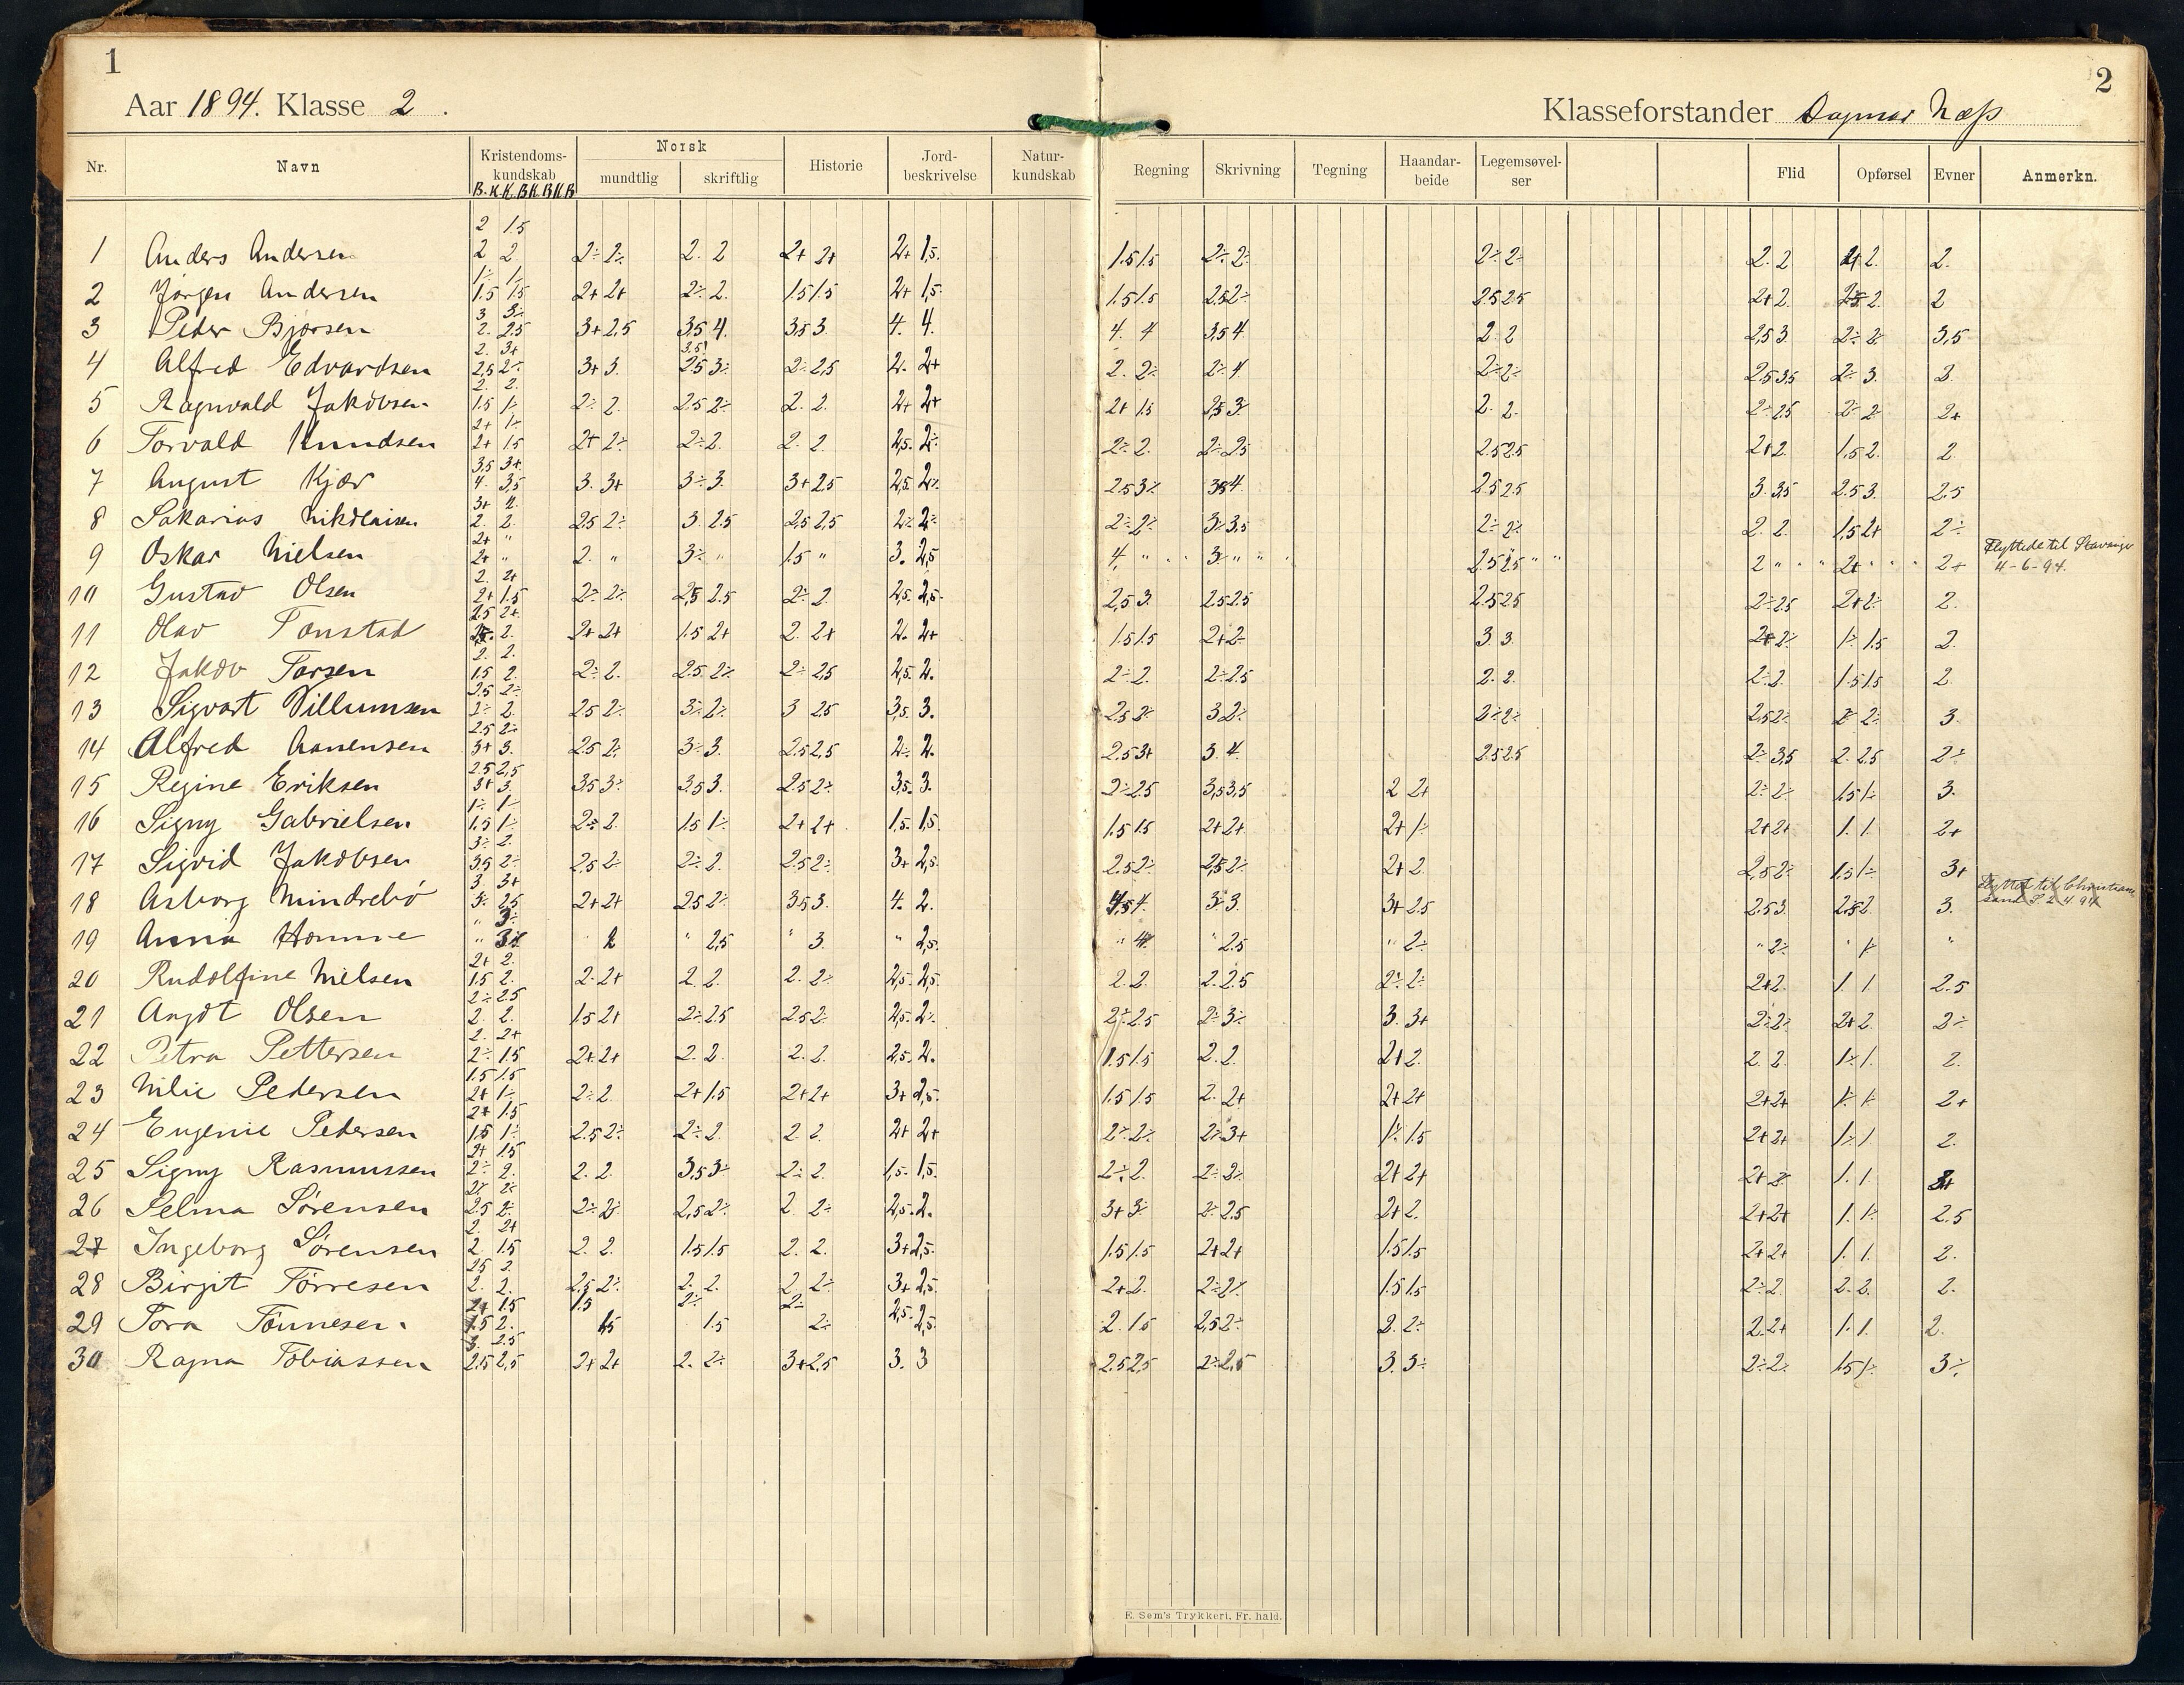 1
2
Aar 1894. Klasse 2.
Klasseforstander Dagmar Næss
Nr. Navn Kristendoms-kundskab Norsk mundtlig skriftlig Historie Jord-beskrivelse Natur-kundskab Regning Skrivning Tegning Haandar-beide Legemsøvel-ser Flid Opførsel Evner Anmerkn.
B.K.K.BK.BK.B
2 1.5
1 Anders Andersen 2 2. 2÷ 2÷ 2. 2 2+ 2+ 2+ 1,5. 1.5 1.5 2÷ 2÷ 2÷ 2÷ 2. 2 2. 2.
1÷ 1÷
2 Jørgen Andersen 1.5 1.5 2+ 2+ 2÷ 2. 1.5 1.5 2+ 1,5. 1.5 1.5 2.5 2÷ 2.5 2.5 2+ 2. 2. 2
3 3÷
3 Peder Bjorsen 2. 2.5 3+ 2,5 3.5 4. 3,5 3. 4. 4. 4. 4 3,5 4. 2. 2 2,5 3. 2÷ 2÷ 3,5
2. 3+
4 Alfred Edvardsen 2,5 2÷ 3+ 3. 2.5 3÷ 2÷ 2,5 2. 2+ 2. 2÷ 2÷ 4 2÷ 2÷ 2.5 3.5 2÷ 3. 3.
2. 2.
5 Ragnvald Jakobsen 1.5 1÷ 2÷ 2. 2.5 2÷ 2. 2. 2+ 2+ 2+ 1.5 2,5 3÷ 2. 2. 2÷ 2.5 2÷ 2 2+
2+ 1÷
6 Torvald Knudsen 2+ 1.5 2+ 2÷ 2÷ 2. 2. 2. 2,5. 2÷ 2÷ 2. 2÷ 2.5 2.5 2.5 2+ 2. 1.5 2. 2.
3,5 3+
7 August Kjær 4. 3,5 3. 3+ 3÷ 3. 3+ 2.5 2,5. 2÷ 2.5 3÷ 4. 2.5 2.5 3. 3.5 2.5 3. 2.5
8 Sakarias Nikolaisen 2. 2. 2.5 2÷ 3. 2.5 2,5 2,5 2÷ 2÷ 2÷ 2÷ 3÷ 3,5 2÷ 2÷ 2. 2. 1,5 2+ 2÷
2+ "
9 Oskar Nielsen 2+ " 2. " 3÷ " 1.5 " 3. 2,5 4. " 3÷ " 2.5 2.5 " 2 " 2+ " 2+ Flyttede til Stavanger
4-6-94.
2. 2+
10 Gustav Olsen 2+ 1.5 2÷ 2÷ 2,5 2.5 2÷ 2. 2,5. 2,5. 2,5 3. 2.5 2.5 2.5 2.5 2÷ 2.5 2+ 2÷ 2.
2.5 2+
11 Olav Tonstad 2. 2+ 2+ 1.5 2+ 2. 2+ 2. 2+ 1.5 1.5 2+ 2÷ 3 3. 2+ 2÷ 1÷ 1.5 2.
2. 2.
12 Jakob Torsen 1.5 2. 2÷ 2. 2.5 2÷ 2÷ 2,5 2,5. 2. 2÷ 2. 2÷ 2.5 2. 2. 2÷ 2. 1.5 1.5 2.
2.5 2÷
13 Sigvart Villumsen 2÷ 2. 2.5 2÷ 3÷ 2÷ 3 2.5 3,5. 3. 2.5 2÷ 3 2÷ 2÷ 2÷ 2,5 2÷ 2÷ 2÷ 3.
2.5 2÷
14 Alfred Aanensen 3+ 3. 2.5 2÷ 3÷ 3. 2.5 2,5 2÷ 2. 2.5 3+ 3. 4. 2.5 2.5 2÷ 3,5 2. 2.5 2÷
2.5 2,5
15 Regine Eriksen 3+ 3. 3.5 3÷ 3.5 3. 2.5 2÷ 3,5. 3. 2÷ 2.5 3,5 3,5 2 2+ 2÷ 2÷ 1.5 1÷ 3.
1÷ 1÷
16 Signy Gabrielsen 1.5 1÷ 2÷ 2. 1.5 1÷ 2+ 2+ 1,5. 1,5. 1.5 1.5 2+ 2+ 2+ 1÷ 2+ 2+ 1. 1. 2+
3÷ 2.
17 Sigrid Jakobsen 3.5 2÷ 2.5 2÷ 2÷ 2. 2.5 2÷ 3+ 2,5. 2.5 2÷ 2,5 2÷ 2+ 2. 2,5 2÷ 1.5 1÷ 3+
3 3+
18 Asborg Mindrebø 3÷ 2.5 2+ 2+ 2.5 2÷ 3.5 3. 4. 2. 4. 3÷ 3. 3+ 2.5 2.5 3. 3. Flyttet til Christian-
sand S 2 4 94
" 3÷
19 Anna Homme " 2 " 2,5 " 3. " 2,5. " 2.5 " 2÷ " 2÷ " 1÷ "
2+ 2.
20 Rudolfine Nielsen 1.5 2. 2÷ 2+ 2. 2. 2. 2÷ 2,5. 2,5. 2. 2. 2. 2.5 2÷ 2÷ 2+ 2. 1. 1 2.5
2÷ 2.5
21 Angot Olsen 2. 2. 1.5 2+ 2÷ 2.5 2.5 2÷ 2,5. 2÷ 2÷ 2.5 2÷ 3÷ 3. 3+ 2÷ 2÷ 2+ 2. 2÷
2. 2+
22 Petra Pettersen 2÷ 1.5 2+ 2+ 2. 2. 2. 2. 2,5. 2. 1.5 1.5 2. 2. 2+ 2. 2. 2. 1÷ 1. 2.
1.5 1.5
23 Milie Pedersen 2+ 1÷ 2÷ 2. 2+ 1.5 2+ 2+ 3+ 2,5. 1.5 1.5 2. 2+ 2+ 2+ 2+ 2+ 1÷ 1÷ 2+
2+ 1.5
24 Eugenie Pedersen 1.5 1÷ 2.5 2÷ 2÷ 2. 2. 2. 2+ 2+ 2÷ 2÷ 2÷ 3+ 1÷ 1.5 2+ 2+ 1÷ 1 2.
2+ 1.5
25 Signy Rasmussen 2÷ 2. 2. 2. 3.5 3÷ 2÷ 2. 1,5. 1,5. 2÷ 2. 2÷ 2÷ 2+ 2+ 2+ 2 1. 1.
2÷ 2÷
26 Selma Sørensen 2.5 2÷ 2÷ 2÷ 2,5 2÷ 2. 2÷ 2,5. 2. 3+ 3÷ 2÷ 2.5 2+ 2. 2+ 2+ 1. 1÷ 2.5
2. 2+
27 Ingeborg Sørensen 2. 1.5 2. 2. 1.5 1.5 2. 2. 3+ 2,5. 1.5 1.5 2+ 2+ 1.5 1.5 2+ 2+ 1. 1. 2.
2.5 2.
28 Birgit Tørresen 2. 2. 2.5 2÷ 2. 2. 2 2÷ 3+ 2,5. 2+ 2. 2÷ 2÷ 1.5 1.5 2÷ 2. 2. 2. 2.
2+ 1.5 1.5 2÷ 2÷
29 Tora Tønnesen 1.5 2. 1.5 1.5 2÷ 2,5. 2,5. 2. 1.5 2,5 2÷ 2. 2÷ 2. 2+ 1. 1. 2.
3. 2.5
30 Ragna Tobiassen 2.5 2,5 2+ 2+ 2. 2÷ 3+ 2.5 3. 3 2.5 2,5 2÷ 2,5 3. 3÷ 2÷ 2. 1.5 1÷ 3÷
E. Sem's Trykkeri, Fr. hald.